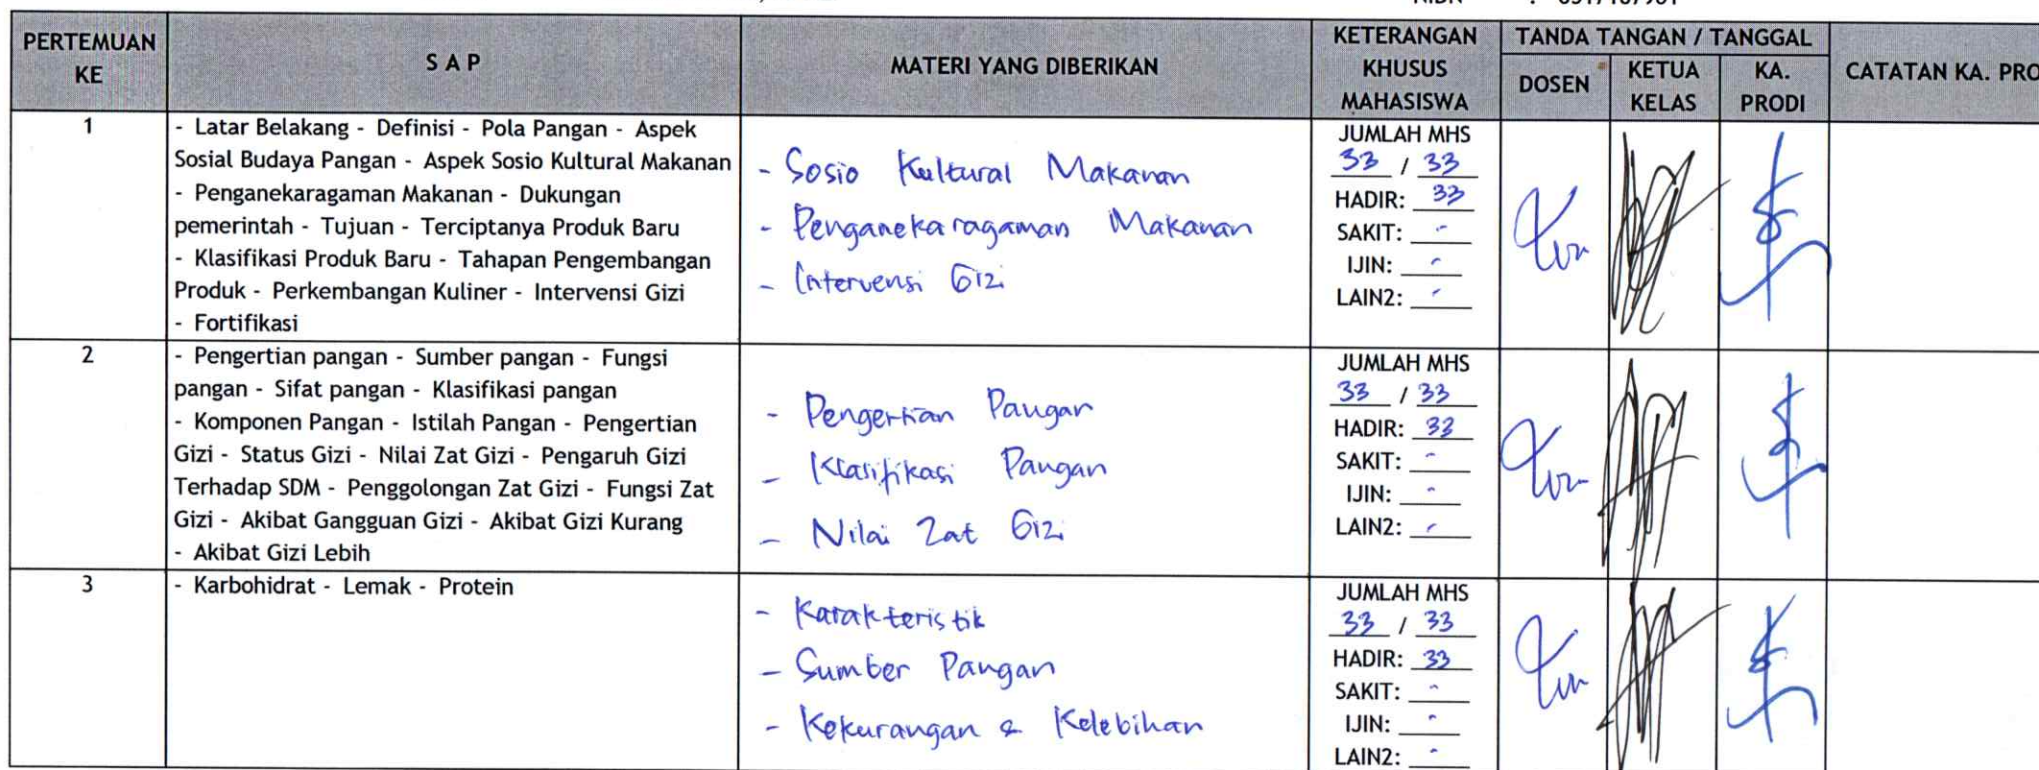 PERTEMUAN KE
S A P
MATERI YANG DIBERIKAN
KETERANGAN KHUSUS MAHASISWA
TANDA TANGAN / TANGGAL
DOSEN
KETUA KELAS
KA. PRODI
CATATAN KA. PRO
1
- Latar Belakang - Definisi - Pola Pangan - Aspek
Sosial Budaya Pangan - Aspek Sosio Kultural Makanan
- Penganekaragaman Makanan - Dukungan
pemerintah - Tujuan - Terciptanya Produk Baru
- Klasifikasi Produk Baru - Tahapan Pengembangan
Produk - Perkembangan Kuliner - Intervensi Gizi
- Fortifikasi
- Sosio Kultural Makanan
- Penganekaragaman Makanan
- Intervensi Gizi
JUMLAH MHS
33 / 33
HADIR: 33
SAKIT: -
IJIN: -
LAIN2: -
2
- Pengertian pangan - Sumber pangan - Fungsi
pangan - Sifat pangan - Klasifikasi pangan
- Komponen Pangan - Istilah Pangan - Pengertian
Gizi - Status Gizi - Nilai Zat Gizi - Pengaruh Gizi
Terhadap SDM - Penggolongan Zat Gizi - Fungsi Zat
Gizi - Akibat Gangguan Gizi - Akibat Gizi Kurang
- Akibat Gizi Lebih
- Pengertian Pangan
- Klasifikasi Pangan
- Nilai Zat Gizi
JUMLAH MHS
33 / 33
HADIR: 33
SAKIT: -
IJIN: -
LAIN2: -
3
- Karbohidrat - Lemak - Protein
- Karakteristik
- Sumber Pangan
- Kekurangan & Kelebihan
JUMLAH MHS
33 / 33
HADIR: 33
SAKIT: -
IJIN: -
LAIN2: -